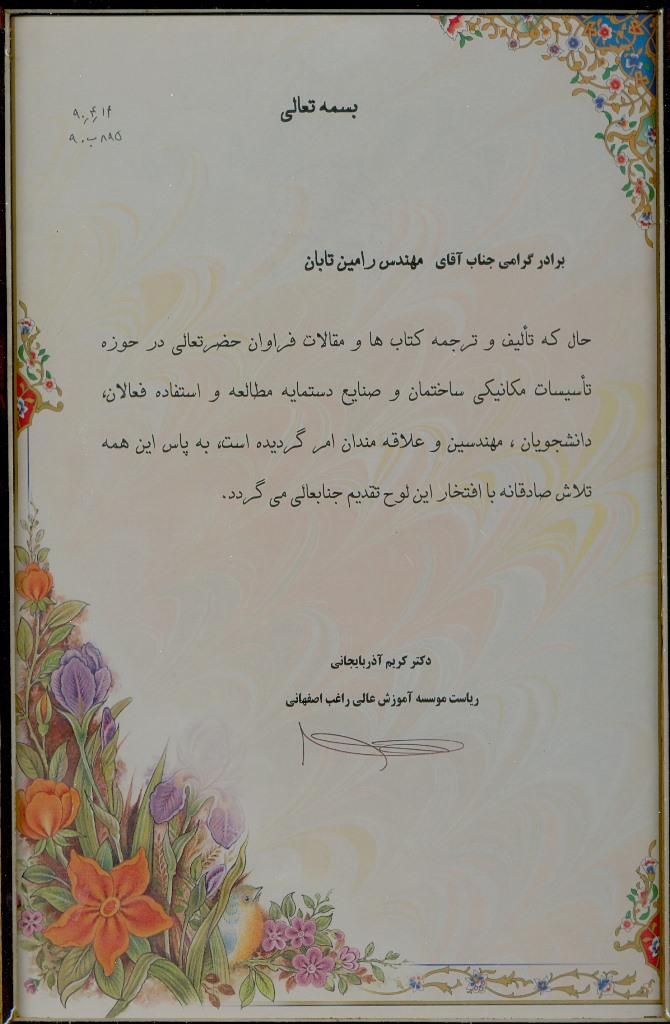 بسمه تعالی
۹۰,۴,۱۴
۸۹۵ب۹۰
برادر گرامی جناب آقای مهندس رامین تابان
حال که تألیف و ترجمه کتاب ها و مقالات فراوان حضرتعالی در حوزه
تأسیسات مکانیکی ساختمان و صنایع دستمایه مطالعه و استفاده فعالان،
دانشجویان ، مهندسین و علاقه مندان امر گردیده است، به پاس این همه
تلاش صادقانه با افتخار این لوح تقدیم جنابعالی می گردد.
دکتر کریم آذربایجانی
ریاست موسسه آموزش عالی راغب اصفهانی